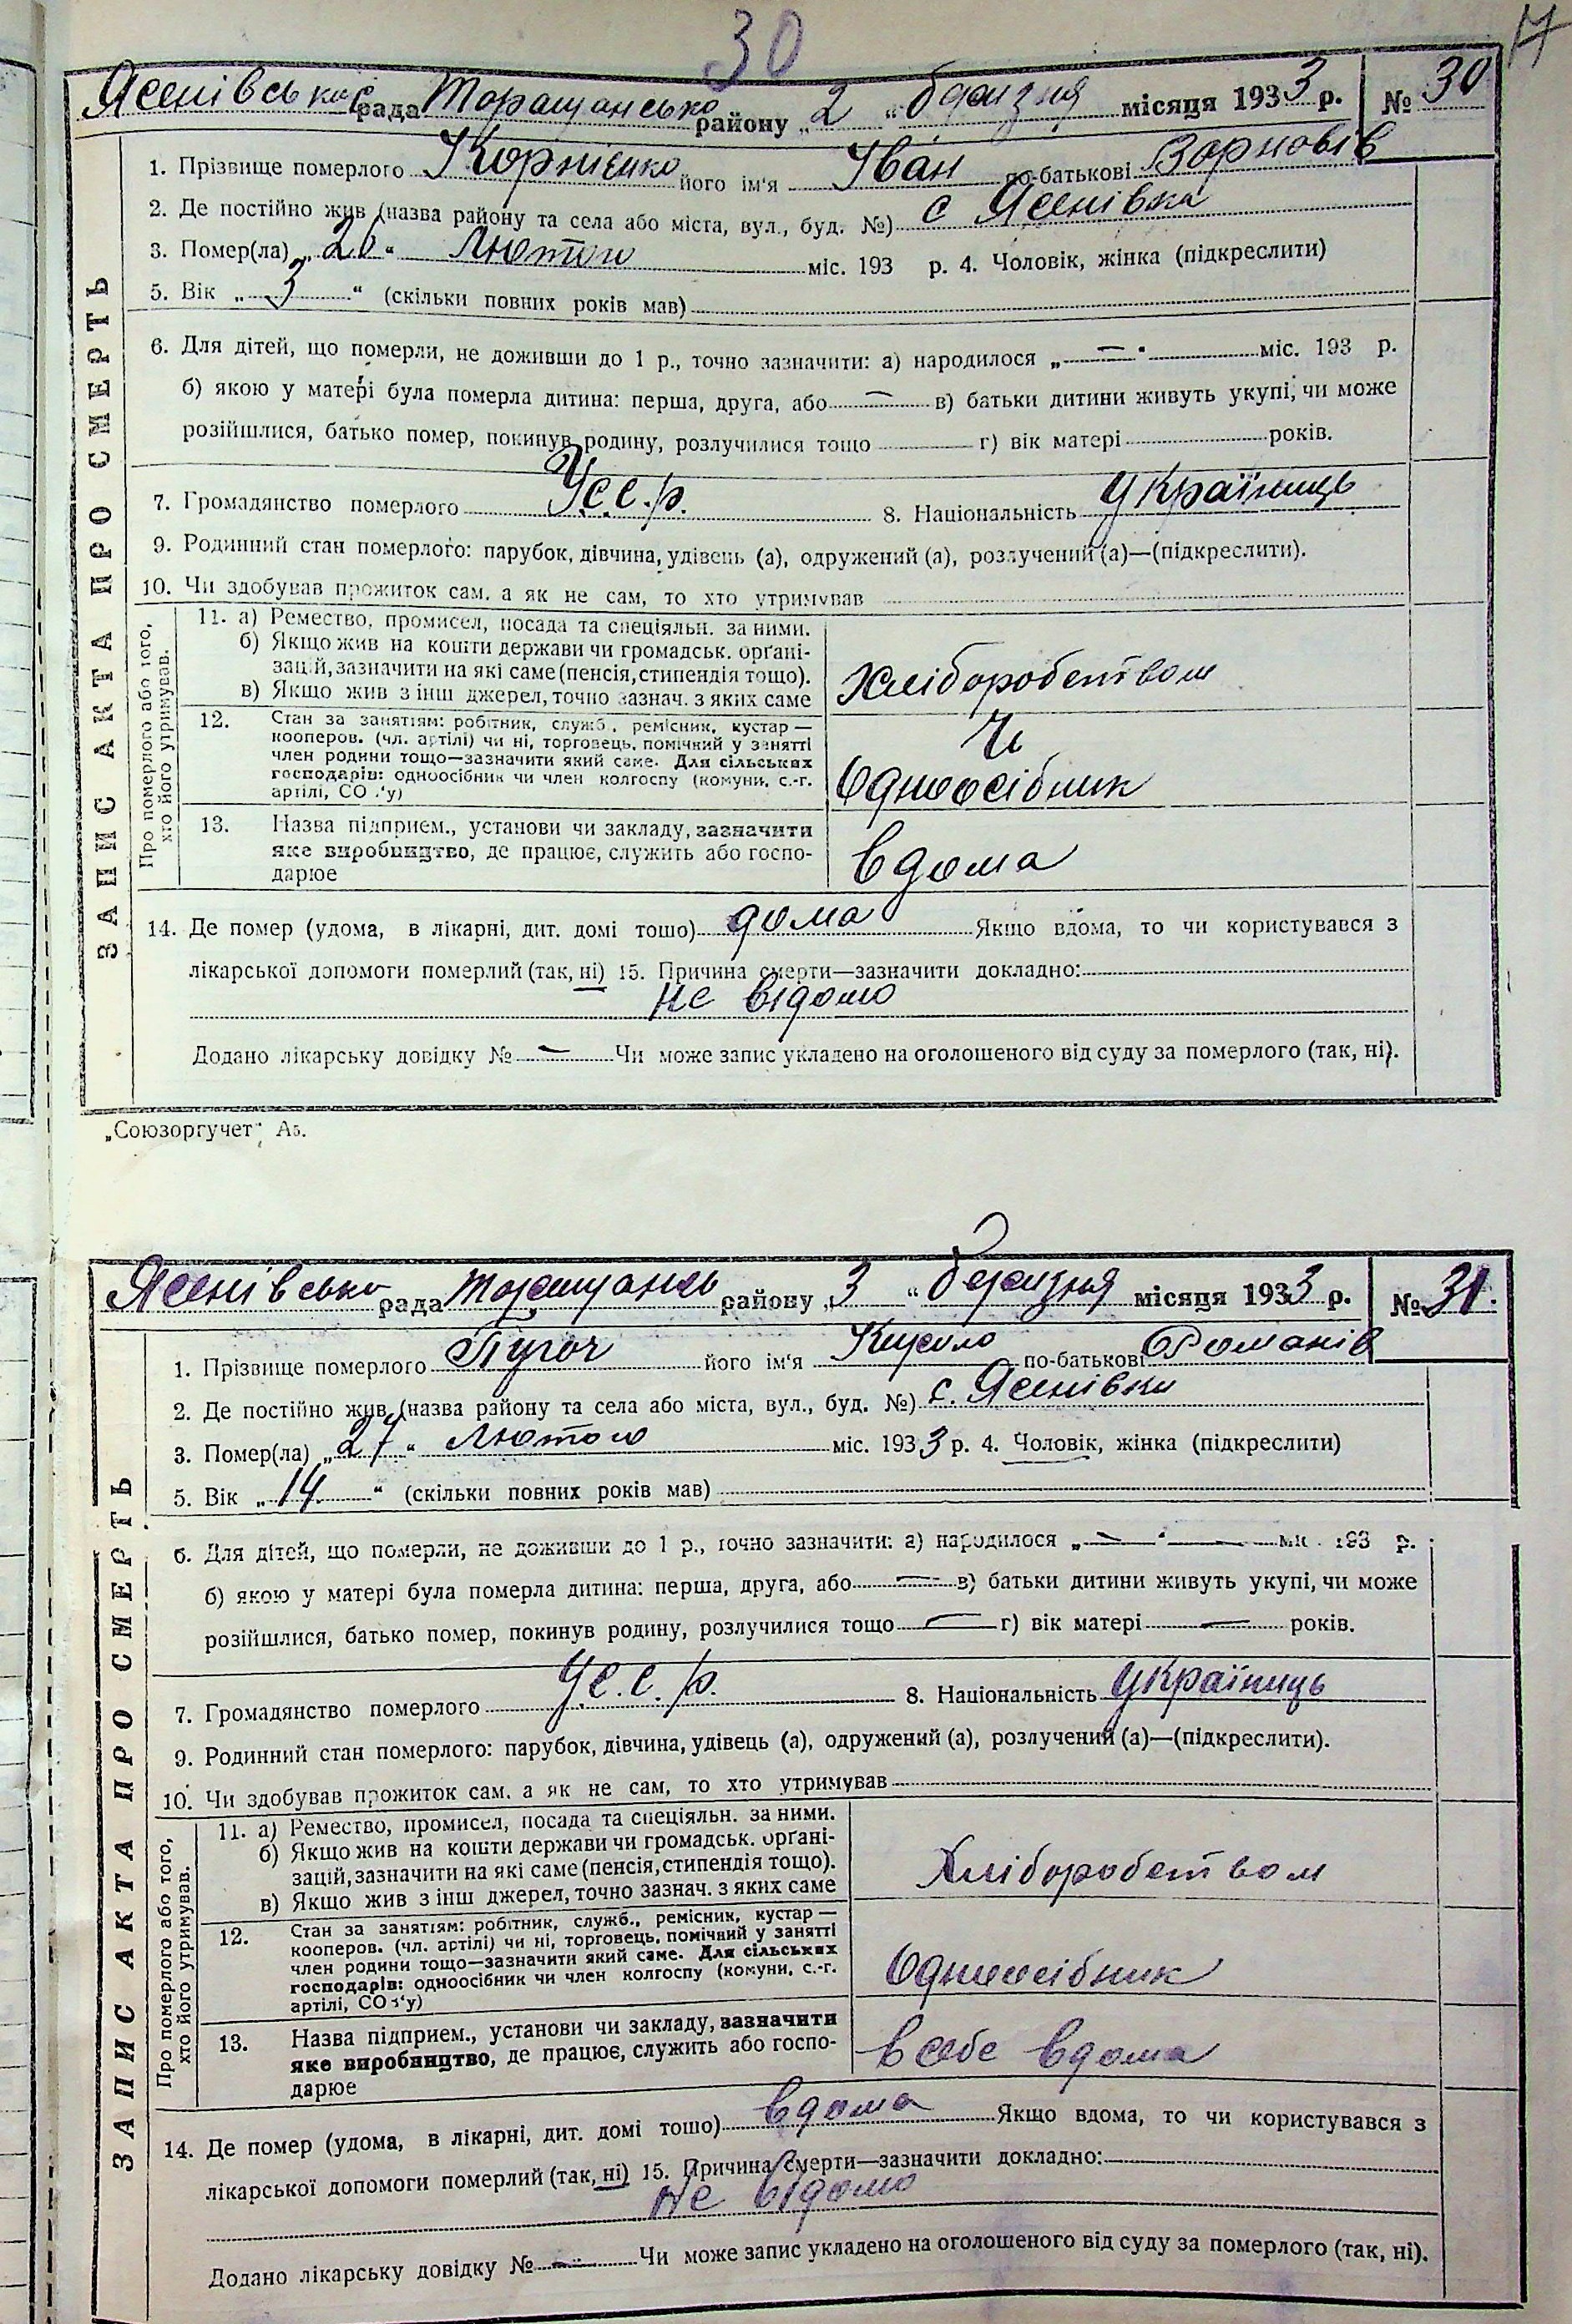 30
17
Ясенівська рада Таращансько району „2“ березня місяця 1933 р. № 30
ЗАПИС АКТА ПРО СМЕРТЬ
1. Прізвище померлого Корнієнко його ім'я Іван по-батькові
2. Де постійно жив (назва району та села або міста, вул., буд. №) с Ясенівка
3. Помер(ла) „26“ Лютого міс. 193 р. 4. Чоловік, жінка (підкреслити)
5. Вік „3“ (скільки повних років мав)
6. Для дітей, що померли, не доживши до 1 р., точно зазначити: а) народилося „— міс. 193 р.
б) якою у матері була померла дитина: перша, друга, або — в) батьки дитини живуть укупі, чи може
розійшлися, батько помер, покинув родину, розлучилися тощо г) вік матері років.
7. Громадянство померлого У.С.С.р. 8. Національність Українець
9. Родинний стан померлого: парубок, дівчина, удівець (а), одружений (а), розлучений (а)—(підкреслити).
10. Чи здобував прожиток сам, а як не сам, то хто утримував
Про померлого або того,
хто його утримував.
11. а) Ремество, промисел, посада та спеціяльн. за ними.
б) Якщо жив на кошти держави чи громадськ. орґані-
зацій, зазначити на які саме (пенсія, стипендія тощо).
в) Якщо жив з інш джерел, точно зазнач. з яких саме
Хліборобством
12. Стан за занятіям: робітник, служб., ремісник, кустар —
кооперов. (чл. артілі) чи ні, торговець, помічний у занятті
член родини тощо—зазначити який саме. Для сільських
господарів: одноосібник чи член колгоспу (комуни, с.-г.
артілі, СОЗ'у)
Одноосібник
13. Назва підприєм., установи чи закладу, зазначити
яке виробництво, де працює, служить або госпо-
дарює
вдома
14. Де помер (удома, в лікарні, дит. домі тощо) дома Якщо вдома, то чи користувався з
лікарської допомоги померлий (так, ні) 15. Причина смерти—зазначити докладно:
не відомо
Додано лікарську довідку № — Чи може запис укладено на оголошеного від суду за померлого (так, ні).
„Союзоргучет“ Аз.
Ясенівсько рада Таращансь району „3“ березня місяця 1933 р. № 31.
ЗАПИС АКТА ПРО СМЕРТЬ
1. Прізвище померлого Пугач його ім'я по-батькові Романів
2. Де постійно жив (назва району та села або міста, вул., буд. №) с. Ясенівки
3. Помер(ла) „27“ Лютого міс. 1933 р. 4. Чоловік, жінка (підкреслити)
5. Вік „14“ (скільки повних років мав)
6. Для дітей, що померли, не доживши до 1 р., точно зазначити: а) народилося „— — міс. 193 р.
б) якою у матері була померла дитина: перша, друга, або — в) батьки дитини живуть укупі, чи може
розійшлися, батько помер, покинув родину, розлучилися тощо — г) вік матері — років.
7. Громадянство померлого У.С.С.р. 8. Національність Українець
9. Родинний стан померлого: парубок, дівчина, удівець (а), одружений (а), розлучений (а)—(підкреслити).
10. Чи здобував прожиток сам, а як не сам, то хто утримував
Про померлого або того,
хто його утримував.
11. а) Ремество, промисел, посада та спеціяльн. за ними.
б) Якщо жив на кошти держави чи громадськ. орґані-
зацій, зазначити на які саме (пенсія, стипендія тощо).
в) Якщо жив з інш джерел, точно зазнач. з яких саме
Хліборобством
12. Стан за занятіям: робітник, служб., ремісник, кустар —
кооперов. (чл. артілі) чи ні, торговець, помічний у занятті
член родини тощо—зазначити який саме. Для сільських
господарів: одноосібник чи член колгоспу (комуни, с.-г.
артілі, СОЗ'у)
Одноосібник
13. Назва підприєм., установи чи закладу, зазначити
яке виробництво, де працює, служить або госпо-
дарює
в себе вдома
14. Де помер (удома, в лікарні, дит. домі тощо) вдома Якщо вдома, то чи користувався з
лікарської допомоги померлий (так, ні) 15. Причина смерти—зазначити докладно:
не відомо
Додано лікарську довідку № — Чи може запис укладено на оголошеного від суду за померлого (так, ні).